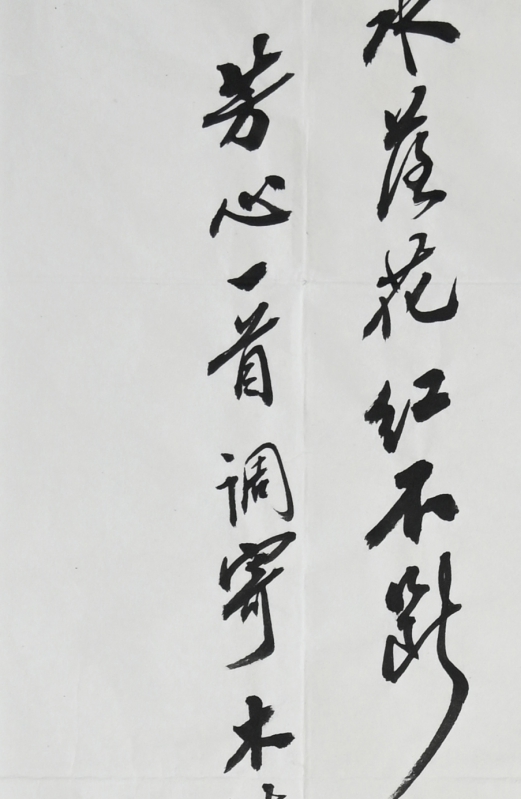 水落花红不断
芳心一首调寄木